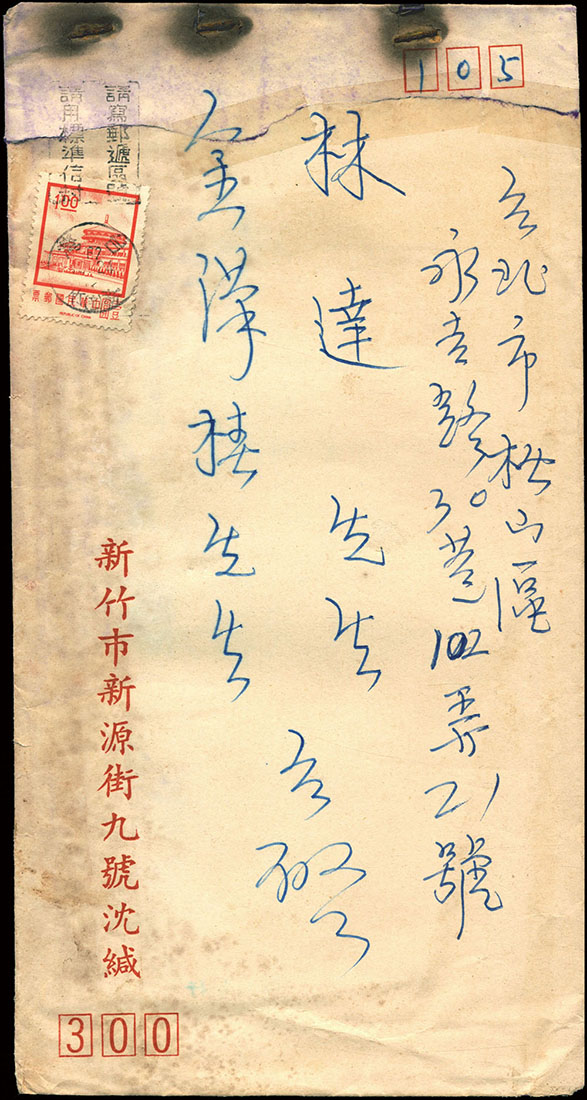 105
台北市松山區
永吉路30巷102弄21號
林達先生
先生
台啟
請寫郵遞區號
請用標準信封
1.00
中華民國郵票
REPUBLIC OF CHINA
新竹市新源街九號沈緘
300